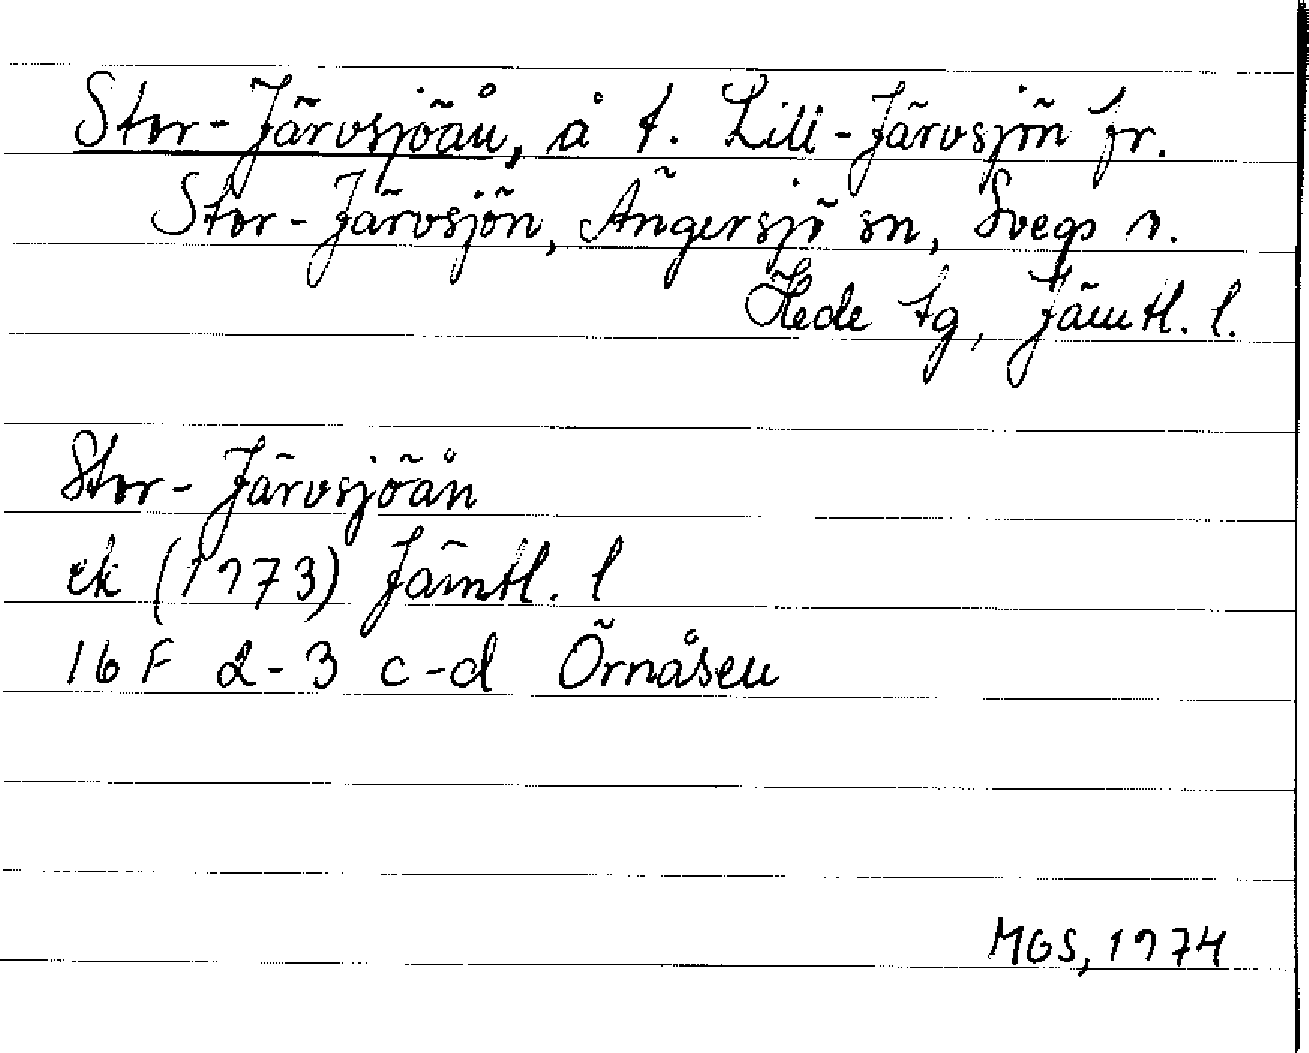 Stor-Järvsjöån, å t. Lill-Järvsjön fr.
Stor-Järvsjön, Ängersjö sn, Svegs s.
Hede tg, Jämtl. l.
Stor-Järvsjöån
ek (1973) Jämtl. l
16 F 2-3 c-d Örnåsen
MGS, 1974